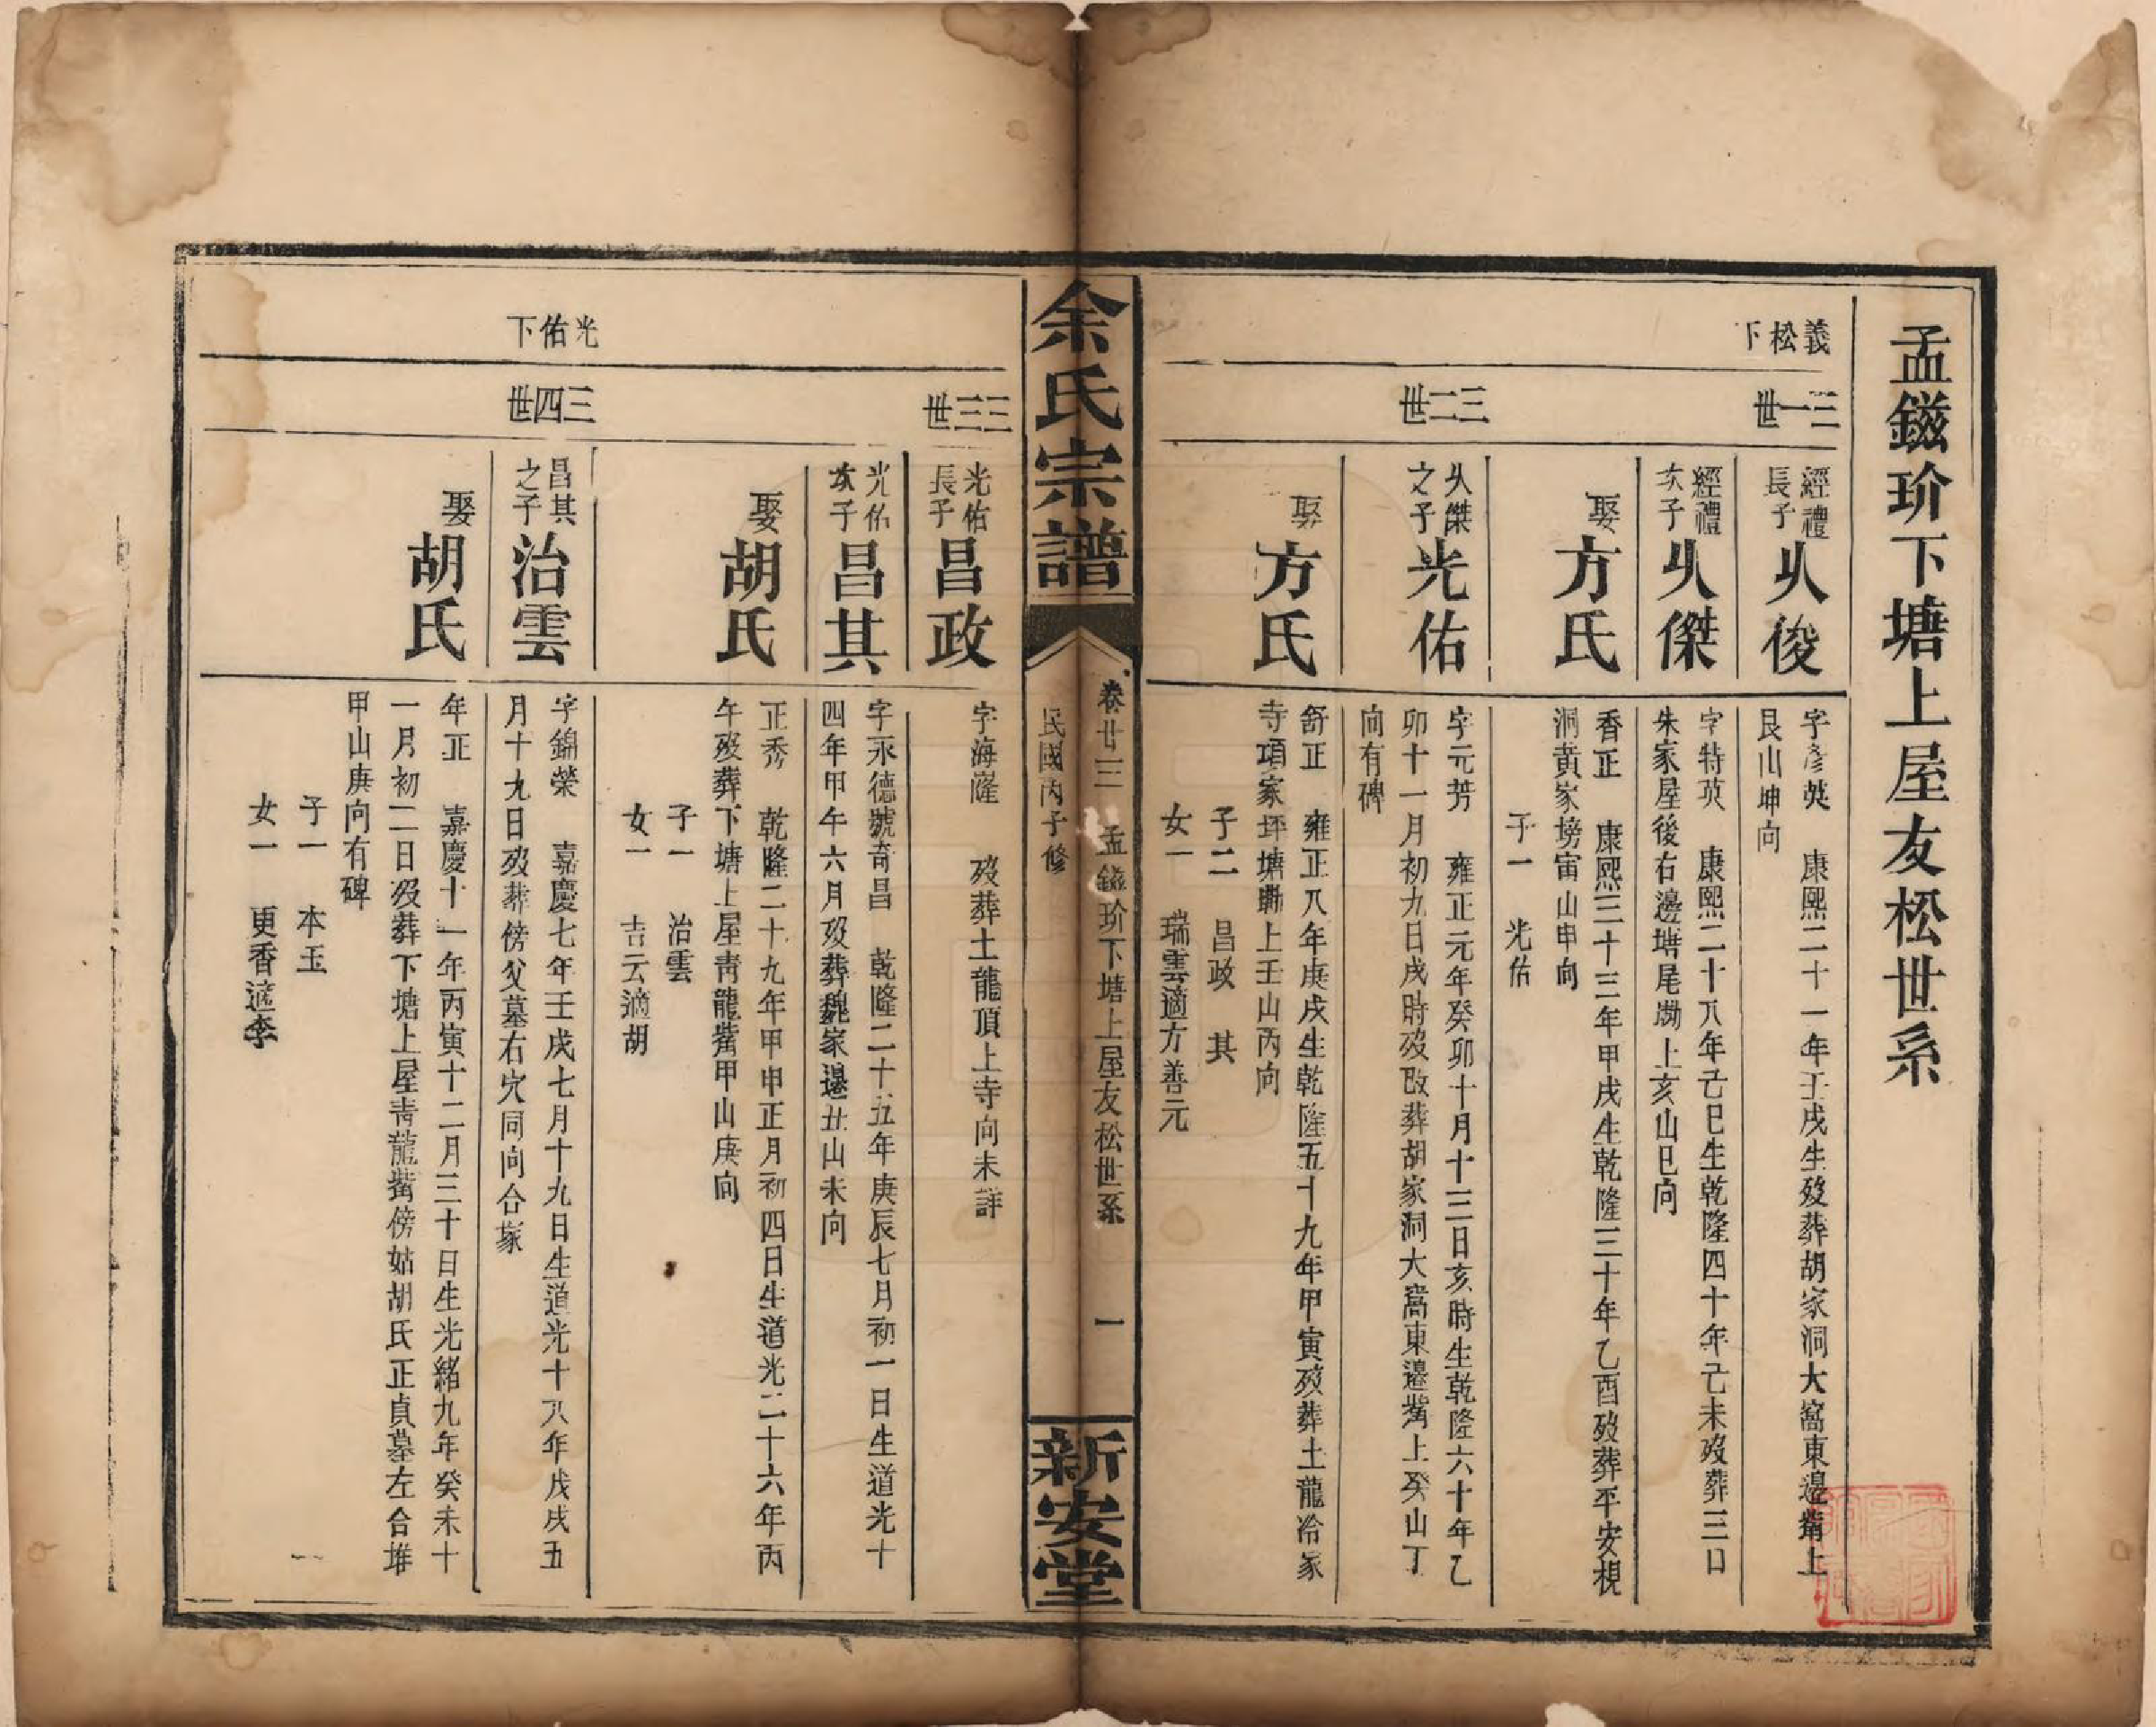 孟鎡玠下塘上屋友松世系
義松下
三一世
經禮長子
从俊
字彥英　康熙二十一年壬戌生歿葬胡家洞大窩東邊嘴上
艮山坤向
經禮次子
从傑
字特英　康熙二十八年己巳生乾隆四十年己未歿葬三口
朱家屋後右邊塘尾塝上亥山巳向
娶
方氏
香正　康熙三十三年甲戌生乾隆三十年乙酉歿葬平安梘
洞黄家塝寅山申向
子一　光佑
三二世
从傑之子
光佑
字元芳　雍正元年癸卯十月十三日亥時生乾隆六十年乙
卯十一月初九日戌時歿改葬胡家洞大窩東邊嘴上癸山丁
向有碑
娶
方氏
舒正　雍正八年庚戌生乾隆五十九年甲寅歿葬土龍冷家
寺項家坪塘塝上壬山丙向
子二　昌政　其
女一　瑞雲適方善元
余氏宗譜
卷廿三　孟鎡玠下塘上屋友松世系　一
民國丙子修
新安堂
光佑下
三三世
光佑長子
昌政
字海隆　歿葬土龍頂上寺向未詳
光佑次子
昌其
字永德號奇昌　乾隆二十五年庚辰七月初一日生道光十
四年甲午六月歿葬魏家邊丑山未向
娶
胡氏
正秀　乾隆二十九年甲申正月初四日生道光二十六年丙
午歿葬下塘上屋靑龍嘴甲山庚向
子一　治雲
女一　吉云適胡
三四世
昌其之子
治雲
字錦榮　嘉慶七年壬戌七月十九日生道光十八年戊戌五
月十九日歿葬傍父墓右穴同向合塚
娶
胡氏
年正　嘉慶十一年丙寅十二月三十日生光緒九年癸未十
一月初二日歿葬下塘上屋靑龍嘴傍姑胡氏正貞墓左合堆
甲山庚向有碑
子一　本玉
女一　更香適李